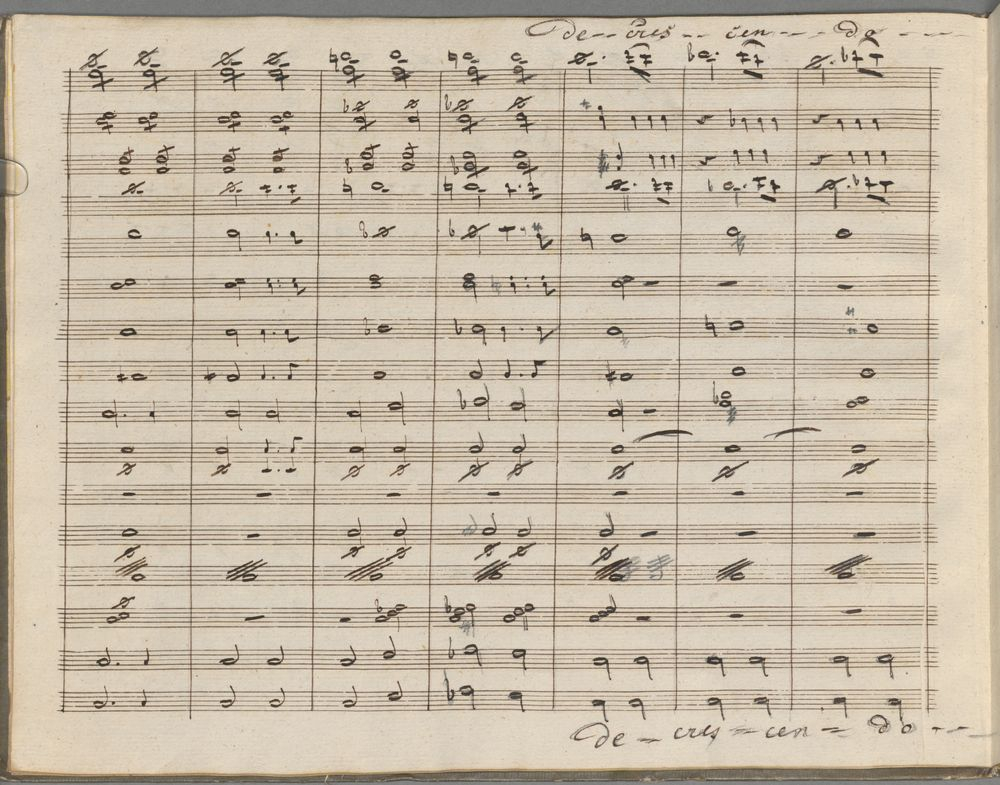 De--cres -- cen --- do ----
De -- cres -- cen -- do ---